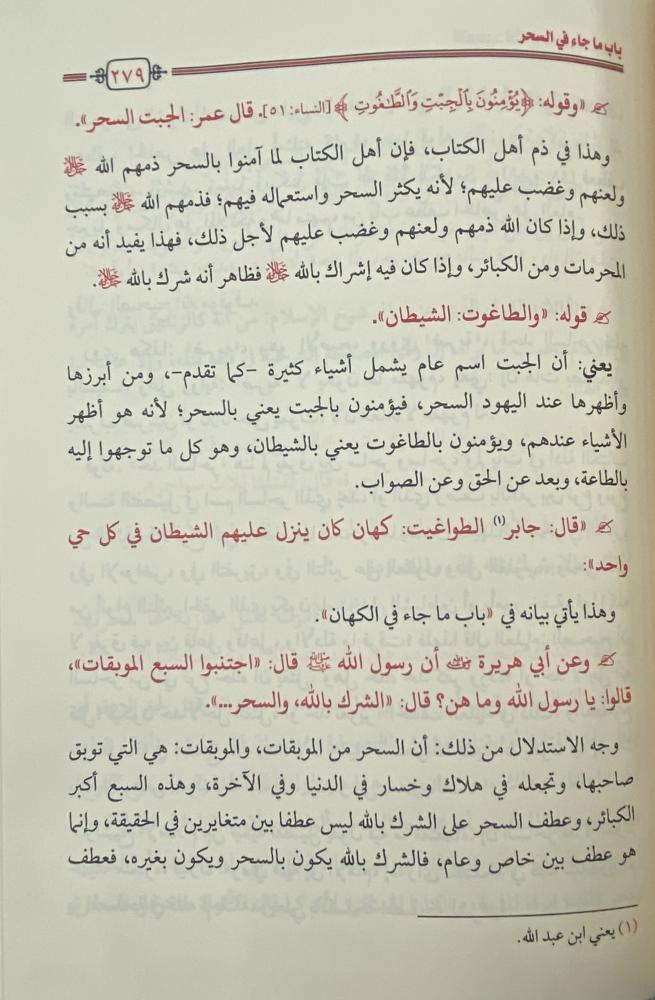 باب ما جاء في السحر
٢٧٩
«وقوله: ﴿يُؤْمِنُونَ بِالْجِبْتِ وَالطَّاغُوتِ﴾ [النساء: ٥١]. قال عمر: الجبت السحر».
وهذا في ذم أهل الكتاب، فإن أهل الكتاب لما آمنوا بالسحر ذمهم الله ﷻ
ولعنهم وغضب عليهم؛ لأنه يكثر السحر واستعماله فيهم؛ فذمهم الله ﷻ بسبب
ذلك، وإذا كان الله ذمهم ولعنهم وغضب عليهم لأجل ذلك، فهذا يفيد أنه من
المحرمات ومن الكبائر، وإذا كان فيه إشراك بالله ﷻ فظاهر أنه شرك بالله ﷻ.
قوله: «والطاغوت: الشيطان».
يعني: أن الجبت اسم عام يشمل أشياء كثيرة -كما تقدم-، ومن أبرزها
وأظهرها عند اليهود السحر، فيؤمنون بالجبت يعني بالسحر؛ لأنه هو أظهر
الأشياء عندهم، ويؤمنون بالطاغوت يعني بالشيطان، وهو كل ما توجهوا إليه
بالطاعة، وبعد عن الحق وعن الصواب.
«قال: جابر(١) الطواغيت: كهان كان ينزل عليهم الشيطان في كل حي
واحد»:
وهذا يأتي بيانه في «باب ما جاء في الكهان».
وعن أبي هريرة رضي الله عنه أن رسول الله ﷺ قال: «اجتنبوا السبع الموبقات»،
قالوا: يا رسول الله وما هن؟ قال: «الشرك بالله، والسحر...».
وجه الاستدلال من ذلك: أن السحر من الموبقات، والموبقات: هي التي توبق
صاحبها، وتجعله في هلاك وخسار في الدنيا وفي الآخرة، وهذه السبع أكبر
الكبائر، وعطف السحر على الشرك بالله ليس عطفا بين متغايرين في الحقيقة، وإنما
هو عطف بين خاص وعام، فالشرك بالله يكون بالسحر ويكون بغيره، فعطف
(١) يعني ابن عبد الله.